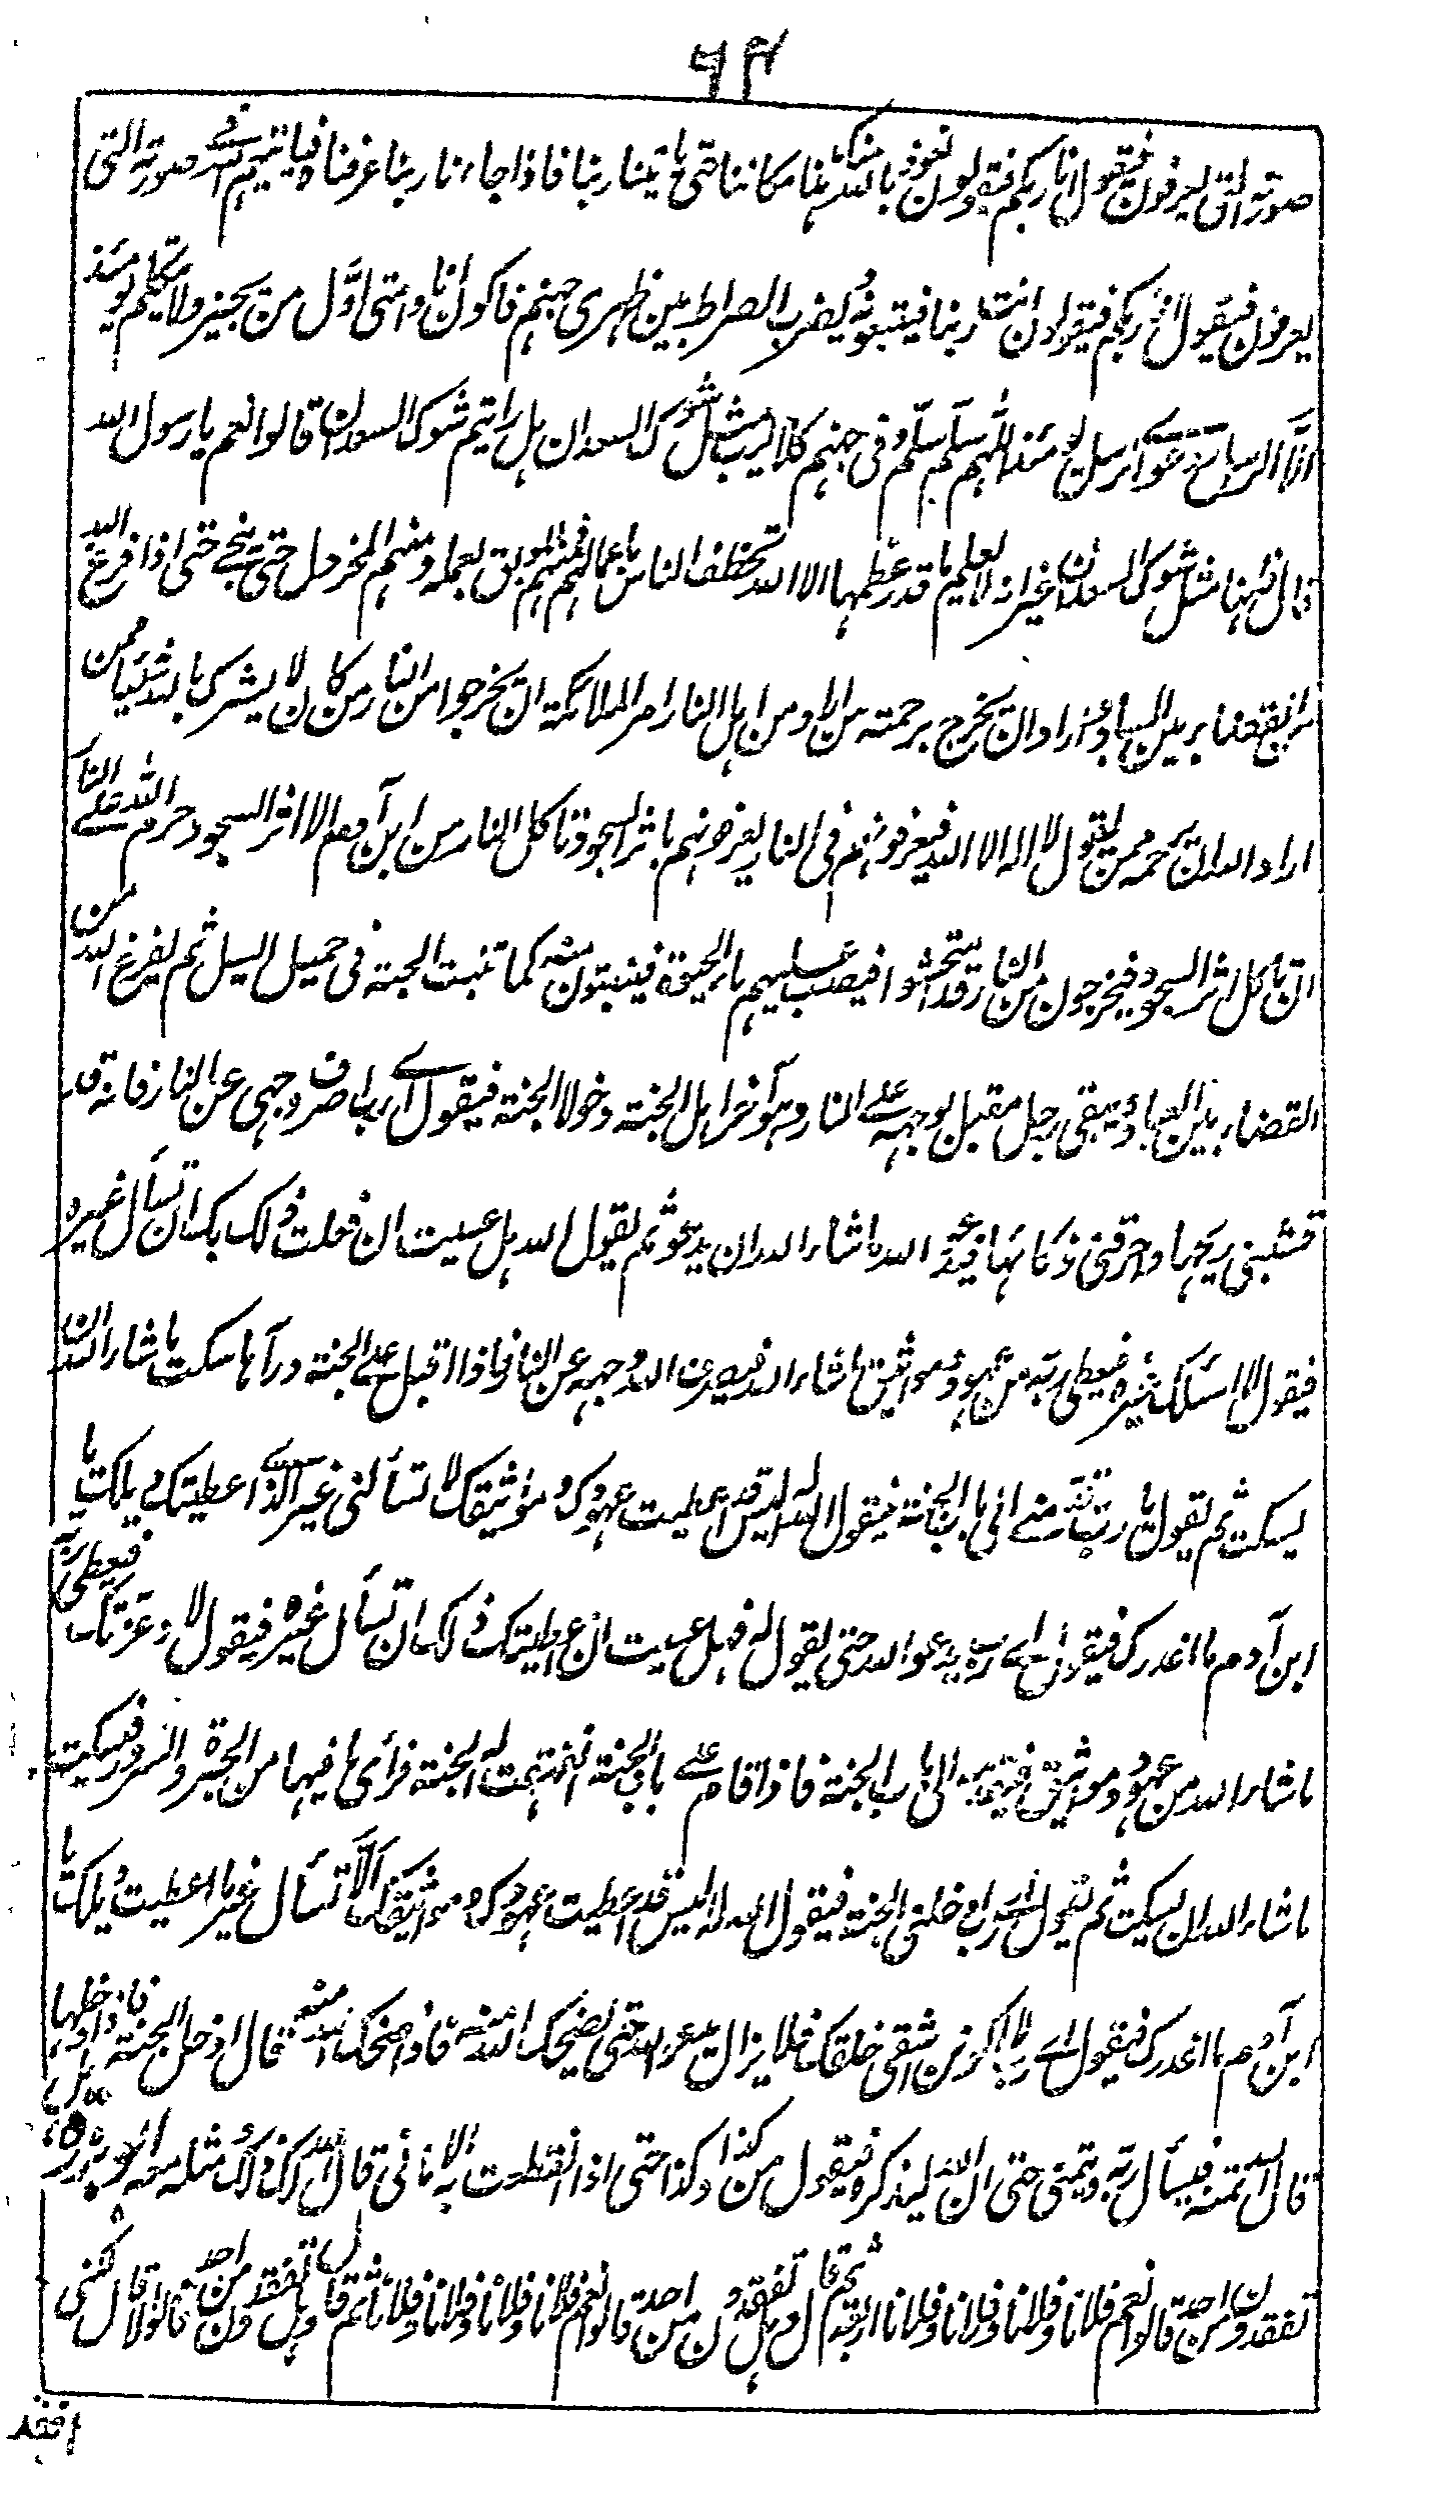 ٦٤
صورته التي يعرفون فيقول انا ربكم فيقولون نعوذ بالله منك هذا مكاننا حتى ياتينا ربنا فاذا جاءنا ربنا عرفناه فياتيهم الله في صورته التي
يعرفون فيقول انا ربكم فيقولون انت ربنا فيتبعونه ويضرب الصراط بين ظهري جهنم فاكون انا وامتي اوّل من يجيز ولا يتكلم يومئذ
الّا الرسل ودعوى الرسل يومئذ اللّهم سلّم سلّم وفي جهنم كلاليب مثل شوك السعدان هل رايتم شوك السعدان قالوا نعم يا رسول الله
قال فانها مثل شوك السعدان غير انه لا يعلم ما قدر عظمها الا الله تخطف الناس باعمالهم فمنهم الموبق بعمله ومنهم المخردل حتى ينجى حتى اذا فرغ الله
من القضاء بين العباد واراد ان يخرج برحمته من اراد من اهل النار امر الملائكة ان يخرجوا من النار من كان لا يشرك بالله شيئا ممن
اراد الله ان يرحمه ممن يقول لا اله الا الله فيعرفونهم في النار يعرفونهم باثر السجود تاكل النار من ابن آدم الا اثر السجود حرم الله على النار
ان تاكل اثر السجود فيخرجون من النار قد امتحشوا فيصب عليهم ماء الحيوة فينبتون منه كما تنبت الحبة في حميل السيل ثم يفرغ الله من
القضاء بين العباد ويبقى رجل مقبل بوجهه على النار وهو آخر اهل الجنة دخولا الجنة فيقول اے رب اصرف وجهي عن النار فانه قد
قشبني ريحها واحرقني ذكاؤها فيدعو الله ما شاء الله ان يدعو ثم يقول الله هل عسيت ان فعلت ذلك بك ان تسأل غيره
فيقول لا اسئلك غيره فيعطي ربه من عهود ومواثيق ما شاء الله فيصرف الله وجهه عن النار فاذا اقبل على الجنة ورآها سكت ما شاء الله ان
يسكت ثم يقول يا رب قدمني الى باب الجنة فيقول الله له اليس قد اعطيت عهودك ومواثيقك لا تسألني غير الذي اعطيتك ويلك يا
ابن آدم ما اغدرك فيقول اے رب يدعو الله حتى يقول له فهل عسيت ان اعطيتك ذلك ان تسأل غيره فيقول لا وعزتك فيعطي ربه
ما شاء الله من عهود ومواثيق فيقدمه الى باب الجنة فاذا قام على باب الجنة انفهقت له الجنة فرأى ما فيها من الحبرة والسرور فيسكت
ما شاء الله ان يسكت ثم يقول اے رب ادخلني الجنة فيقول الله له اليس قد اعطيت عهودك ومواثيقك الّا تسأل غير ما اعطيت ويلك يا
ابن آدم ما اغدرك فيقول اے رب لا اكون اشقى خلقك فلا يزال يدعو الله حتى يضحك الله منه فاذا ضحك الله منه قال ادخل الجنة فاذا دخلها
قال الله تمنه فيسأل ربه ويتمنى حتى ان الله ليذكره فيقول من كذا وكذا حتى اذا انقطعت به الاماني قال الله لك ذلك ومثله معه
تفقدون من احد قالوا نعم فلانا وفلانا وفلانا وفلانا ثم قال هل تفقدون من احد قالوا نعم فلانا وفلانا وفلانا ثم قال هل تفقدون من احد قالوا لا قال لكني
افقد